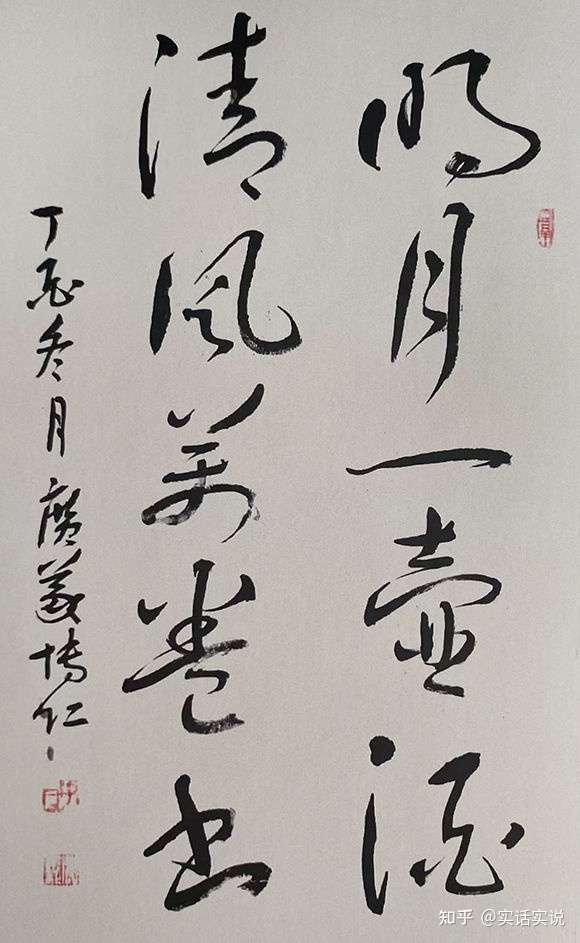 明月一壶酒
清风万卷书
丁酉冬月广义博仁
知乎 @实话实说